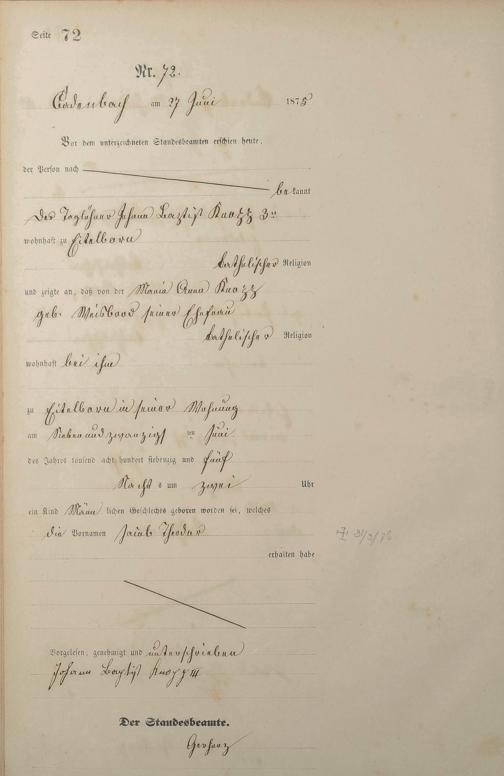 Seite 72
Nr. 72.
Cadenbach am 27 Juni 1875
Vor dem unterzeichneten Standesbeamten erschien heute,
der Person nach
be kannt
Der Taglöhner Johann Baptist Knopp 3r
wohnhaft zu Eitelborn
katholischer Religion
und zeigte an, daß von der Maria Anna Knopp
geb. Weisbrod seiner Ehefrau
katholischer Religion
wohnhaft bei ihm
zu Eitelborn in seiner Wohnung
am Sieben und zwanzigst ten Juni
des Jahres tausend acht hundert siebenzig und fünf
Nacht s um zwei Uhr
ein Kind Männ lichen Geschlechts geboren worden sei, welches
die Vornamen Jacob Theodor
erhalten habe
Vorgelesen, genehmigt und unterschrieben
Johann Baptist Knopp III
Der Standesbeamte.
Gerharz